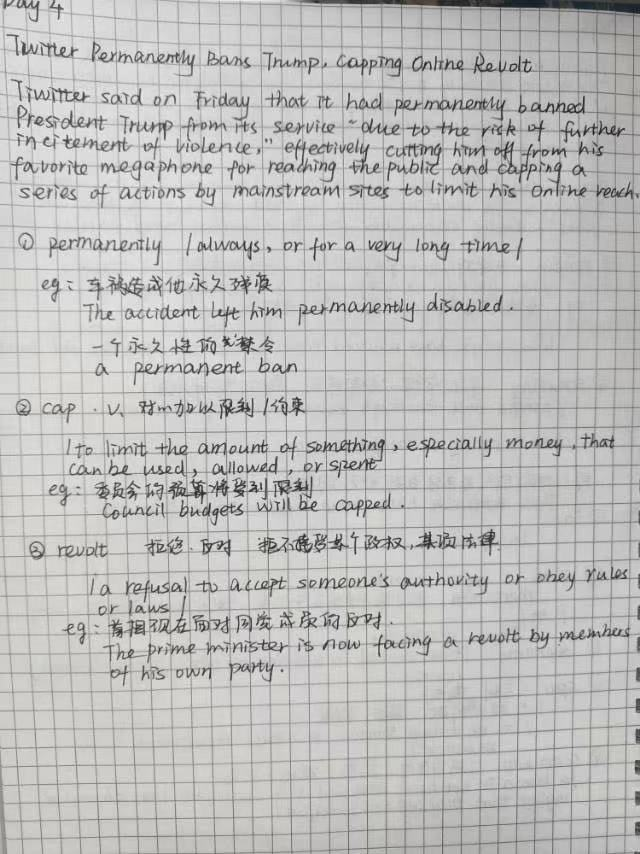 Day 4
Twitter Permanently Bans Trump, Capping Online Revolt
Twitter said on Friday that it had permanently banned
President Trump from its service "due to the risk of further
incitement of violence," effectively cutting him off from his
favorite megaphone for reaching the public and capping a
series of actions by mainstream sites to limit his online reach.
① permanently /always, or for a very long time/
eg: 车祸造成他永久残疾
The accident left him permanently disabled.
一个永久性的禁令
a permanent ban
② cap. v. 对…加以限制/约束
/to limit the amount of something, especially money, that
can be used, allowed, or spent
eg: 委员会的预算将受到限制
Council budgets will be capped.
③ revolt 拒绝.反对 拒不接受某个政权,某项法律
/a refusal to accept someone's authority or obey rules
or laws/
eg: 首相现在面对同党成员的反对.
The prime minister is now facing a revolt by members
of his own party.